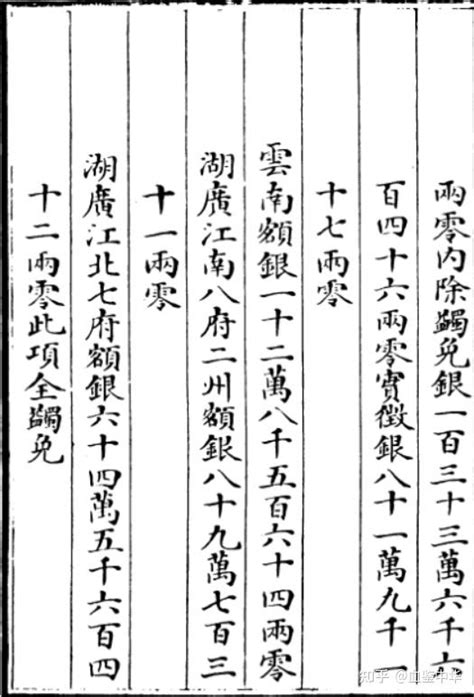 兩零内除蠲免銀一百三十三萬六千六
百四十六兩零實徵銀八十一萬九千一
十七兩零
雲南額銀一十二萬八千五百六十四兩零
湖廣江南八府二州額銀八十九萬七百三
十一兩零
湖廣江北七府額銀六十四萬五千六百四
十二兩零此項全蠲免
知乎 @血鉴中华